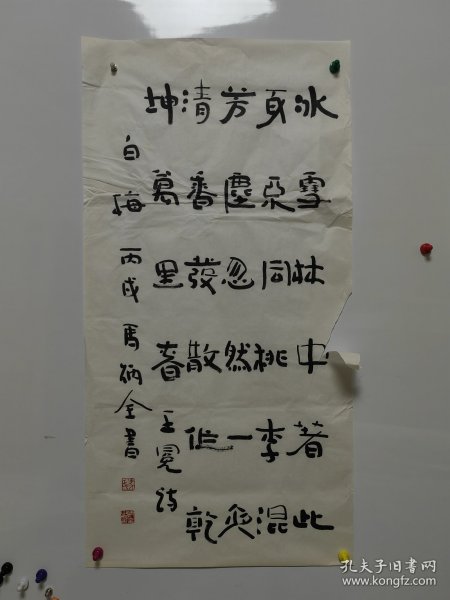 冰雪林中著此
身不同桃李混
芳塵忽然一夜
清香發散作乾
坤萬里春 王冕詩
白梅 丙戌 馬炳全書
孔夫子旧书网
www.kongfz.com